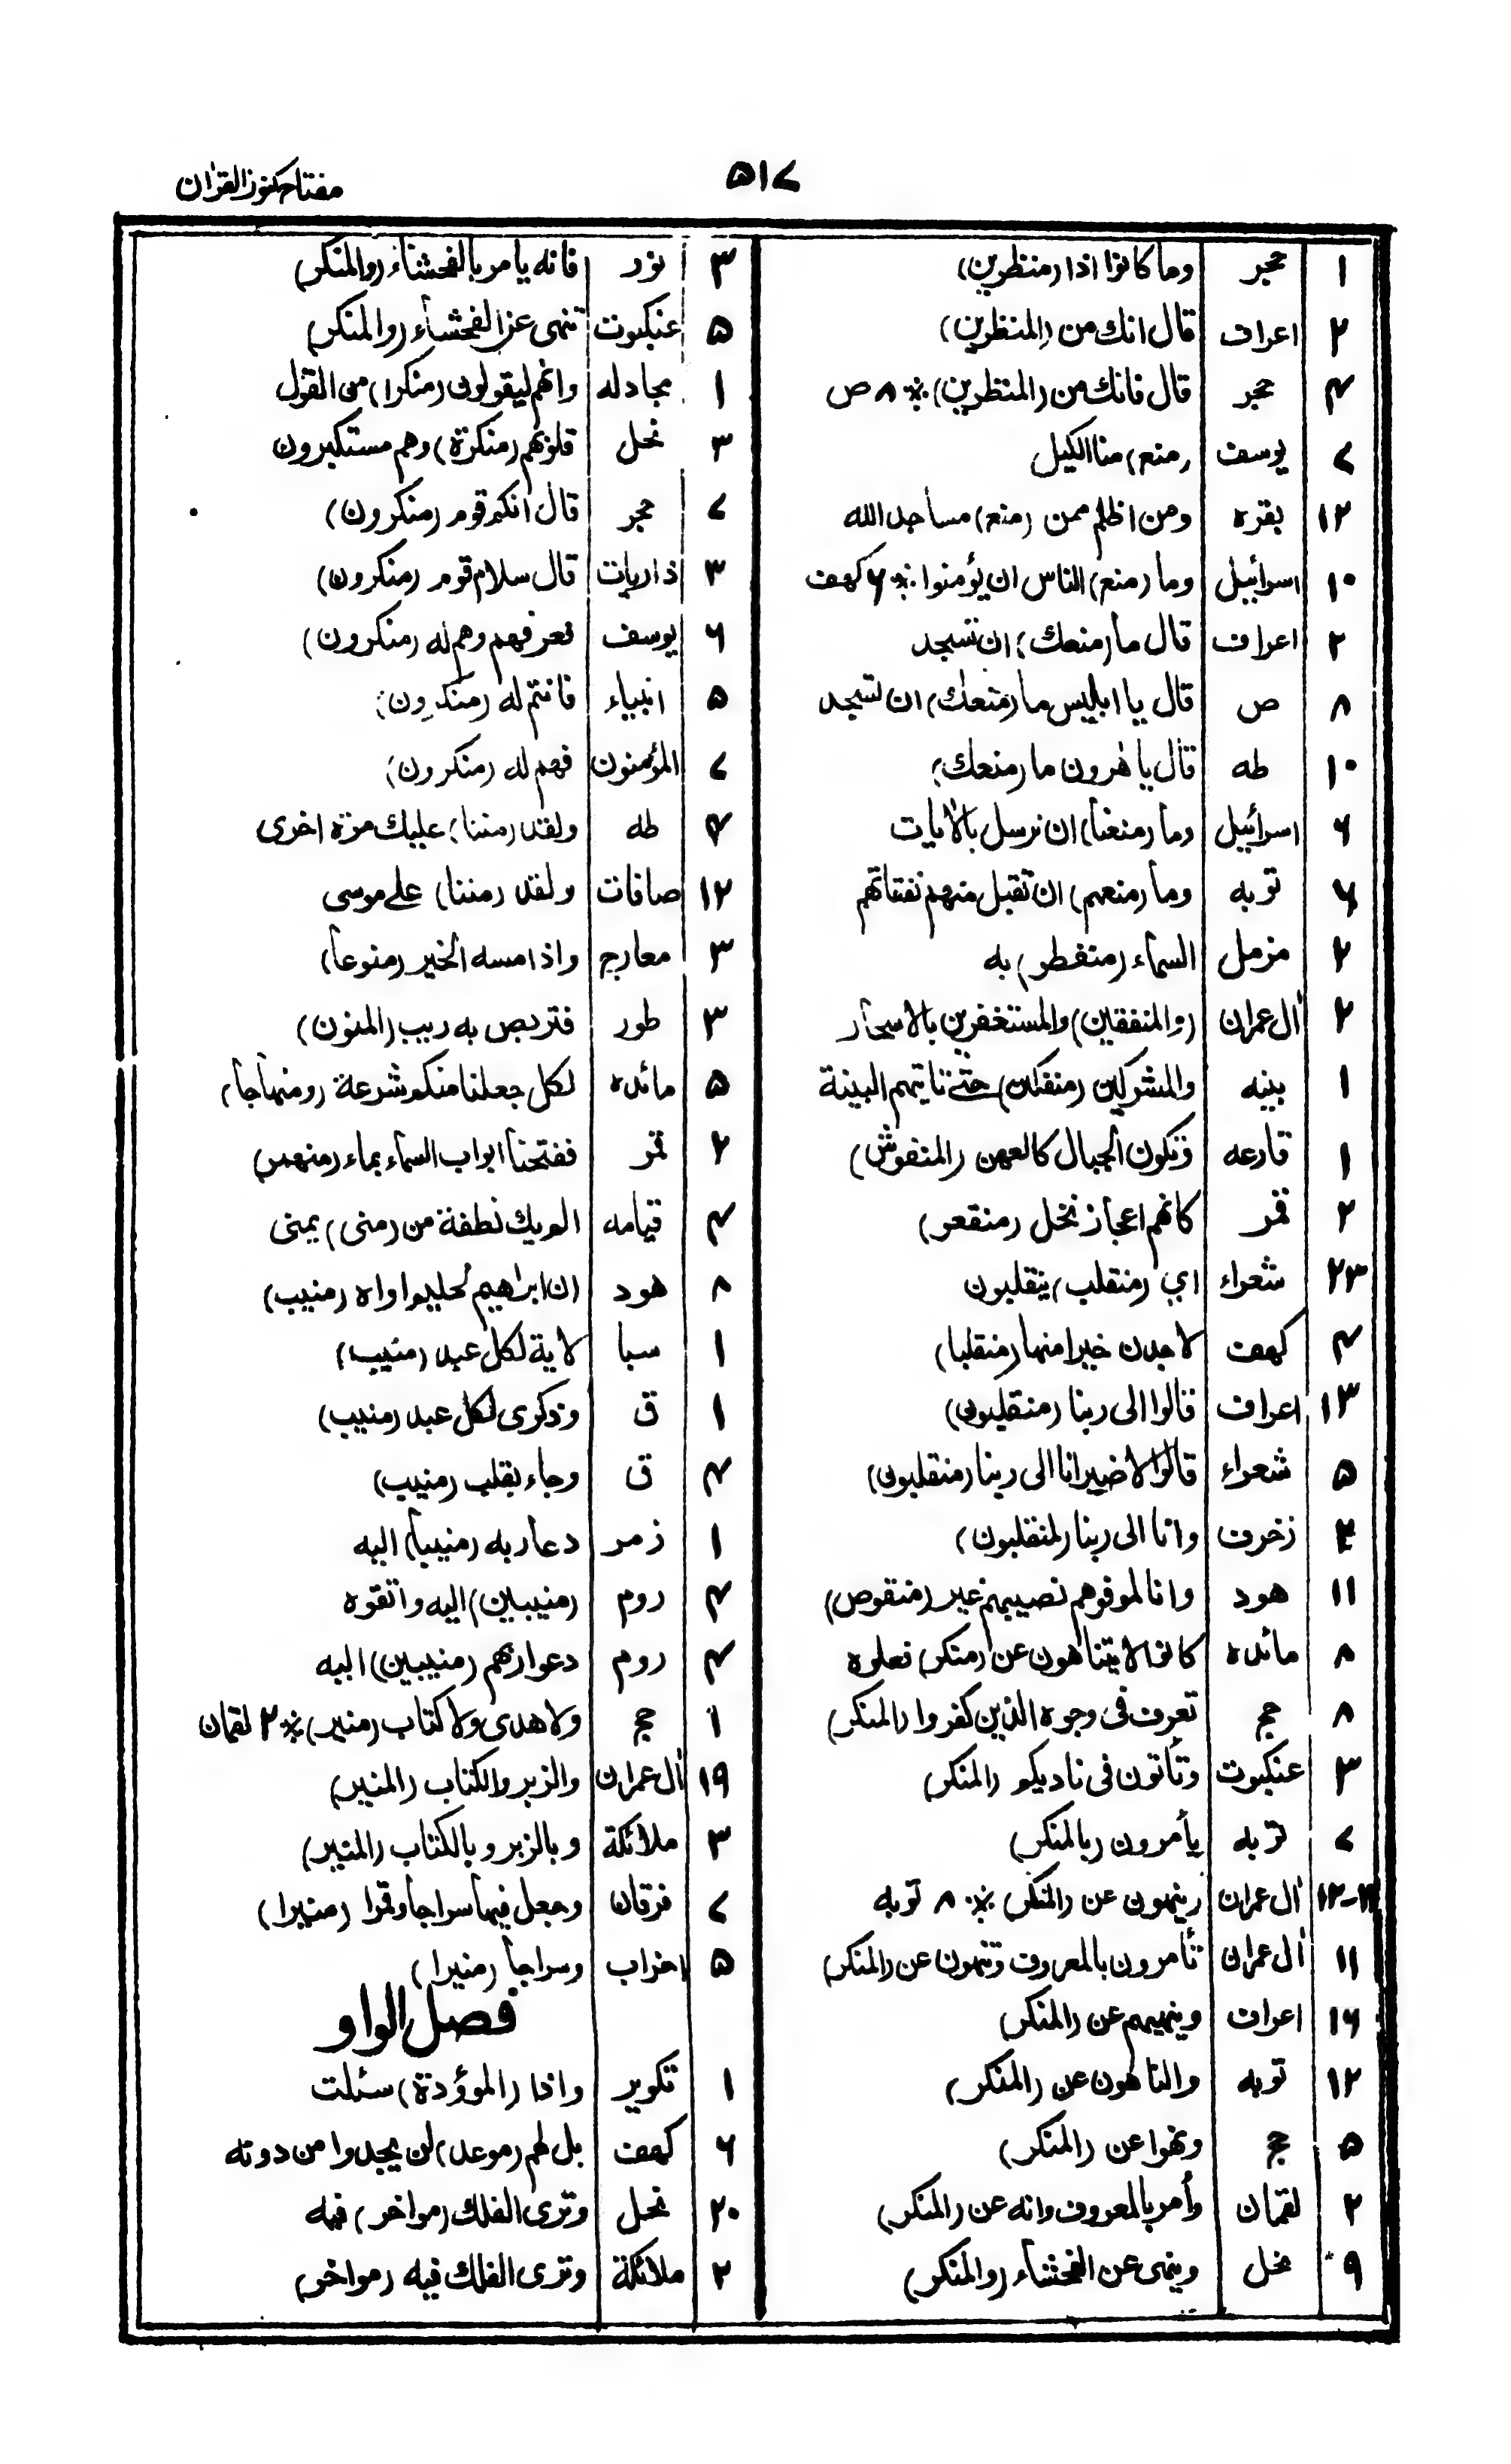 مفتاح كنوز القران
۵۱۷
۱ حجر وما كانوا اذا (منظرين)
۲ اعراف قال انك من (المنظرين)
۴ حجر قال فانك من (المنظرين) ※ ۸ ص
۷ يوسف (منع) منا الكيل
۱۲ بقره ومن اظلم ممن (منع) مساجد الله
۱۰ اسرائيل وما (منع) الناس ان يؤمنوا ※ ۶ كهف
۲ اعراف قال ما (منعك) ان تسجد
۸ ص قال يا ابليس ما (منعك) ان تسجد
۱۰ طه قال يا هرون ما (منعك)
۶ اسرائيل وما (منعنا) ان نرسل بالايات
۶ توبه وما (منعهم) ان تقبل منهم نفقاتهم
۲ مزمل السماء (منفطر) به
۲ آل عمران (والمنفقين) والمستغفرين بالاسحار
۱ بينه والمشركين (منفكين) حتى تاتيهم البينة
۱ قارعه وتكون الجبال كالعهن (المنفوش)
۲ قمر كانهم اعجاز نخل (منقعر)
۲۳ شعراء اي (منقلب) ينقلبون
۴ كهف لاجدن خيرا منها (منقلبا)
۱۳ اعراف قالوا الى ربنا (منقلبون)
۵ شعراء قالوا لا ضير انا الى ربنا (منقلبون)
۴ زخرف وانا الى ربنا (لمنقلبون)
۱۱ هود وانا لموفوهم نصيبهم غير (منقوص)
۸ مائده كانوا لا يتناهون عن (منكر) فعلوه
۸ حج تعرف فى وجوه الذين كفروا (المنكر)
۳ عنكبوت وتأتون فى ناديكم (المنكر)
۷ توبه يأمرون (بالمنكر)
۱۲-۱۱ آل عمران ينهون عن (المنكر) ※ ۸ توبه
۱۱ آل عمران تأمرون بالمعروف وتنهون عن (المنكر)
۱۶ اعراف وينهيهم عن (المنكر)
۱۲ توبه والناهون عن (المنكر)
۵ حج ونهوا عن (المنكر)
۲ لقمان وأمر بالمعروف وانه عن (المنكر)
۹ نحل وينهى عن الفحشاء (والمنكر)
۳ نور فانه يامر بالفحشاء (والمنكر)
۵ عنكبوت تنهى عن الفحشاء (والمنكر)
۱ مجادله وانهم ليقولون (منكرا) من القول
۳ نحل قلوبهم (منكرة) وهم مستكبرون
۷ حجر قال انكم قوم (منكرون)
۳ ذاريات قال سلام قوم (منكرون)
۶ يوسف فعرفهم وهم له (منكرون)
۵ انبياء فانتم له (منكرون)
۷ المؤمنون فهم له (منكرون)
۴ طه ولقد (مننا) عليك مرة اخرى
۱۲ صافات ولقد (مننا) على موسى
۳ معارج واذا مسه الخير (منوعا)
۳ طور فتربص به ريب (المنون)
۵ مائده لكل جعلنا منكم شرعة (ومنهاجا)
۲ قمر ففتحنا ابواب السماء بماء (منهمر)
۴ قيامه الم يك نطفة من (منى) يمنى
۸ هود (ان ابراهيم لحليم اواه (منيب)
۱ سبا لاية لكل عبد (منيب)
۱ ق وذكرى لكل عبد (منيب)
۴ ق وجاء بقلب (منيب)
۱ زمر دعا ربه (منيبا) اليه
۴ روم (منيبين) اليه واتقوه
۴ روم دعوا ربهم (منيبين) اليه
۱ حج ولا هدى ولا كتاب (منير) ※ ۲ لقمان
۱۹ آل عمران والزبر والكتاب (المنير)
۳ ملائكة وبالزبر وبالكتاب (المنير)
۷ فرقان وجعل فيها سراجا وقمرا (منيرا)
۵ احزاب وسراجا (منيرا)
فصل الواو
۱ تكوير واذا (الموؤدة) سئلت
۶ كهف بل لهم (موعد) لن يجدوا من دونه
۲۰ نحل وترى الفلك (مواخر) فيه
۲ ملائكة وترى الفلك فيه (مواخر)